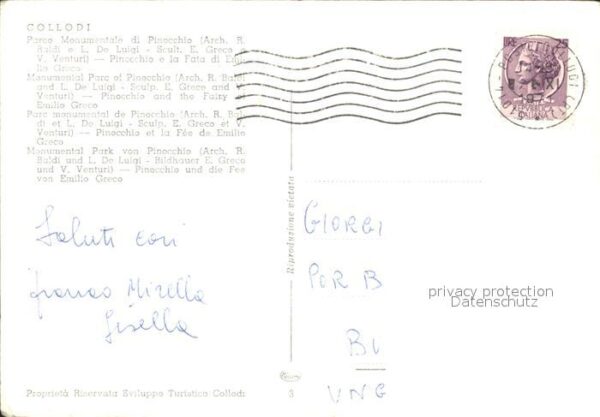 COLLODI
Parco Monumentale di Pinocchio (Arch. R.
Baldi e L. De Luigi - Scult. E. Greco e
V. Venturi) — Pinocchio e la Fata di Emilio
Greco
Monumental Parc of Pinocchio (Arch. R. Baldi
and L. De Luigi - Sculp. E. Greco and V.
Venturi) — Pinocchio and the Fairy of
Emilio Greco
Parc monumental de Pinocchio (Arch. R. Baldi
et L. De Luigi - Sculp. E. Greco et V.
Venturi) — Pinocchio et la Fée de Emilio
Greco
Monumental Park von Pinocchio (Arch. R.
Baldi und L. De Luigi - Bildhauer E. Greco
und V. Venturi) — Pinocchio und die Fee
von Emilio Greco
25
Saluti cari
Franco Mirella
Gisella
Riproduzione vietata
GIORGI
POR B
BU
UNG
privacy protection
Datenschutz
Proprietà Riservata Sviluppo Turistico Collodi
3